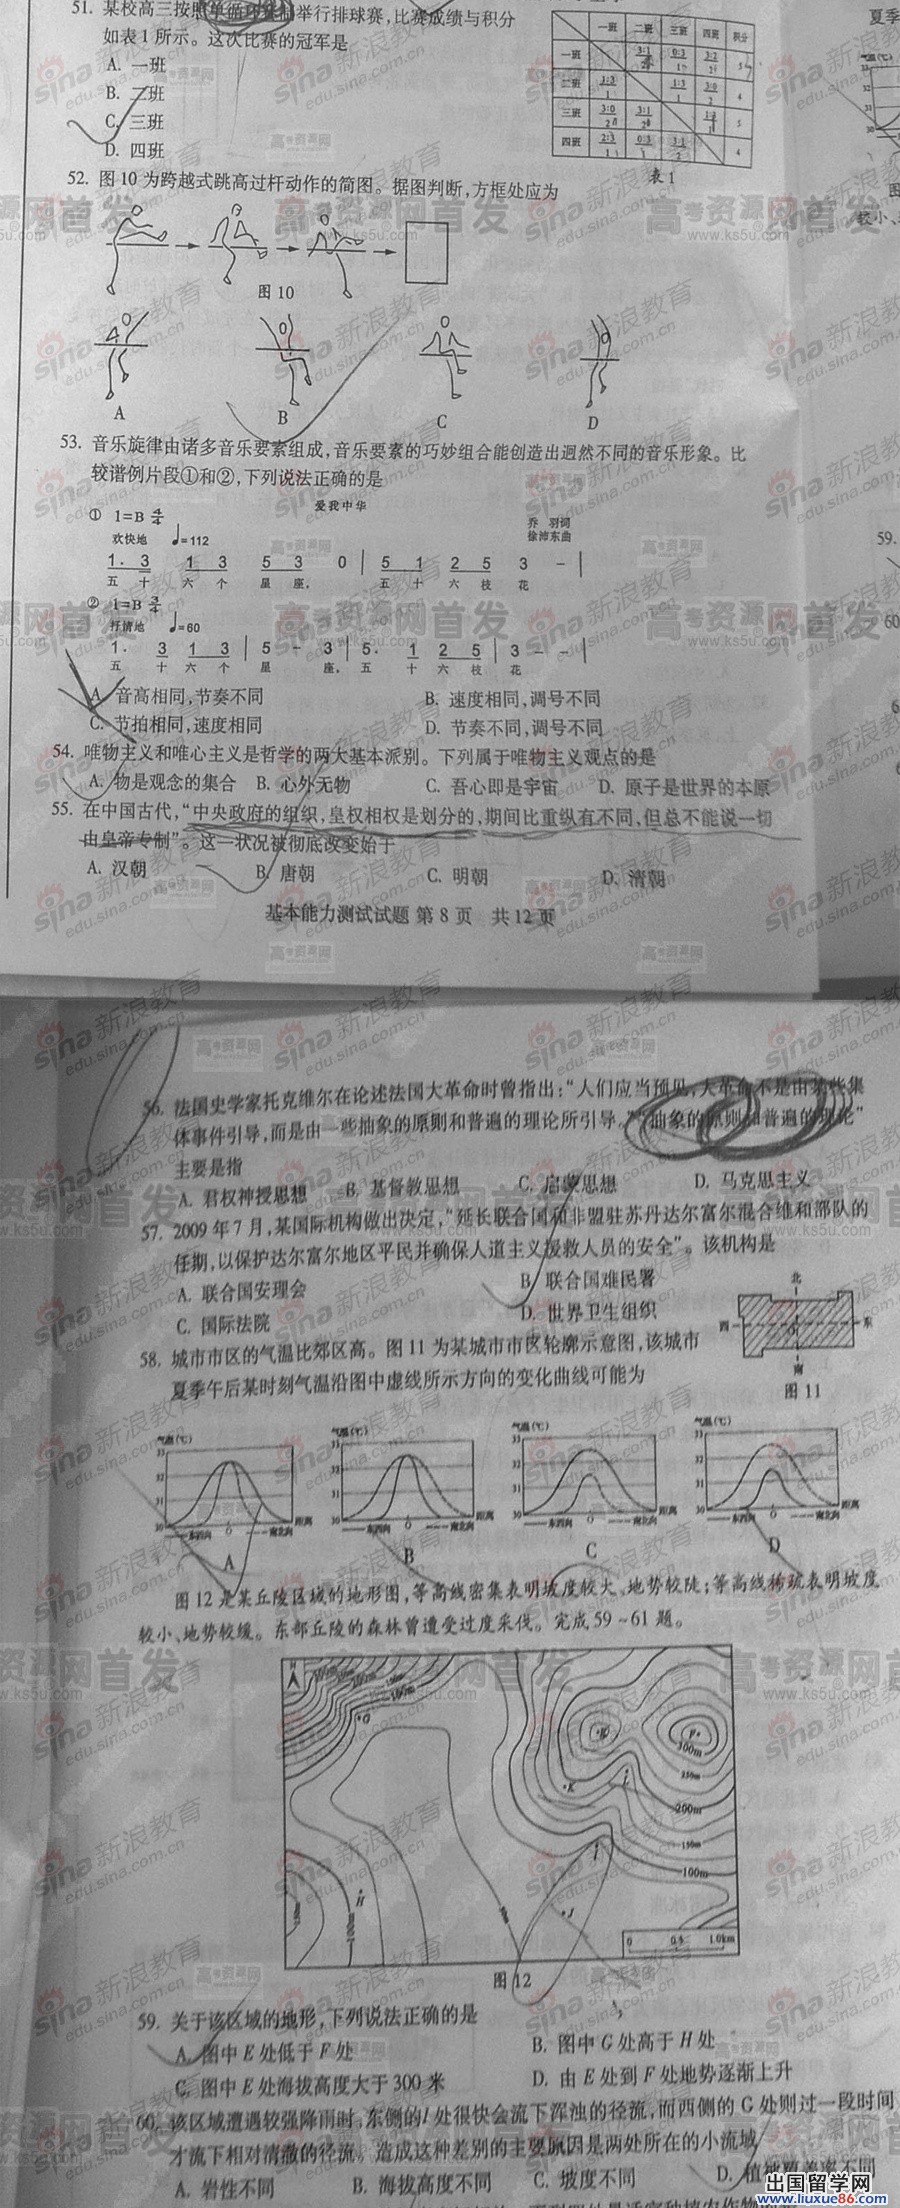 51. 某校高三按照单循环赛制举行排球赛,比赛成绩与积分
如表1所示。这次比赛的冠军是
A. 一班
B. 二班
C. 三班
D. 四班
一班 二班 三班 四班 积分
一班 3:1 0:3 3:2 5
二班 1:3 1:3 3:0 4
三班 3:0 3:1 5
四班 2:3 0:3 3:1 4
表1
52. 图10为跨越式跳高过杆动作的简图。据图判断,方框处应为
图10
A B C D
53. 音乐旋律由诸多音乐要素组成,音乐要素的巧妙组合能创造出迥然不同的音乐形象。比
较谱例片段①和②,下列说法正确的是
爱我中华
① 1=B 4/4
乔 羽词
徐沛东曲
欢快地 ♩=112
1. 3 1 3 5 3 0 | 5 1 2 5 3 - |
五 十 六 个 星 座, 五 十 六 枝 花
② 1=B 3/4
抒情地 ♩=60
1. 3 1 3 | 5 - 3 | 5. 1 2 5 | 3 - - |
五 十 六 个 星 座, 五 十 六 枝 花
A. 音高相同,节奏不同 B. 速度相同,调号不同
C. 节拍相同,速度相同 D. 节奏不同,调号不同
54. 唯物主义和唯心主义是哲学的两大基本派别。下列属于唯物主义观点的是
A. 物是观念的集合 B. 心外无物 C. 吾心即是宇宙 D. 原子是世界的本原
55. 在中国古代,“中央政府的组织,皇权相权是划分的,期间比重纵有不同,但总不能说一切
由皇帝专制”。这一状况被彻底改变始于
A. 汉朝 B. 唐朝 C. 明朝 D. 清朝
基本能力测试试题 第8页 共12页
56. 法国史学家托克维尔在论述法国大革命时曾指出:“人们应当预见,大革命不是由某些集
体事件引导,而是由一些抽象的原则和普遍的理论所引导。”“抽象的原则和普遍的理论”
主要是指
A. 君权神授思想 B. 基督教思想 C. 启蒙思想 D. 马克思主义
57. 2009年7月,某国际机构做出决定,“延长联合国和非盟驻苏丹达尔富尔混合维和部队的
任期,以保护达尔富尔地区平民并确保人道主义援救人员的安全”。该机构是
A. 联合国安理会 B. 联合国难民署
C. 国际法院 D. 世界卫生组织
58. 城市市区的气温比郊区高。图11为某城市市区轮廓示意图,该城市
夏季午后某时刻气温沿图中虚线所示方向的变化曲线可能为
北
西 O 东
南
图11
气温(℃) 气温(℃) 气温(℃) 气温(℃)
33 33 33 33
32 32 32 32
31 31 31 31
30 30 30 30
距离 距离 距离 距离
——东西向 O ---南北向 ——东西向 O ---南北向 ——东西向 O ---南北向 ——东西向 O ---南北向
A B C D
图12是某丘陵区域的地形图,等高线密集表明坡度较大、地势较陡;等高线稀疏表明坡度
较小、地势较缓。东部丘陵的森林曾遭受过度采伐。完成59~61题。
G
E F
300m
250m
K
200m
150m
I
100m
H
J
0 0.5 1.0km
图12
59. 关于该区域的地形,下列说法正确的是
A. 图中E处低于F处 B. 图中G处高于H处
C. 图中E处海拔高度大于300米 D. 由E处到F处地势逐渐上升
60. 该区域遭遇较强降雨时,东侧的I处很快会流下浑浊的径流,而西侧的G处则过一段时间
才流下相对清澈的径流。造成这种差别的主要原因是两处所在的小流域
A. 岩性不同 B. 海拔高度不同 C. 坡度不同 D. 植被覆盖率不同
出国留学网
www.liuxue86.com
sina新浪教育
edu.sina.com.cn
高考资源网首发
www.ks5u.com